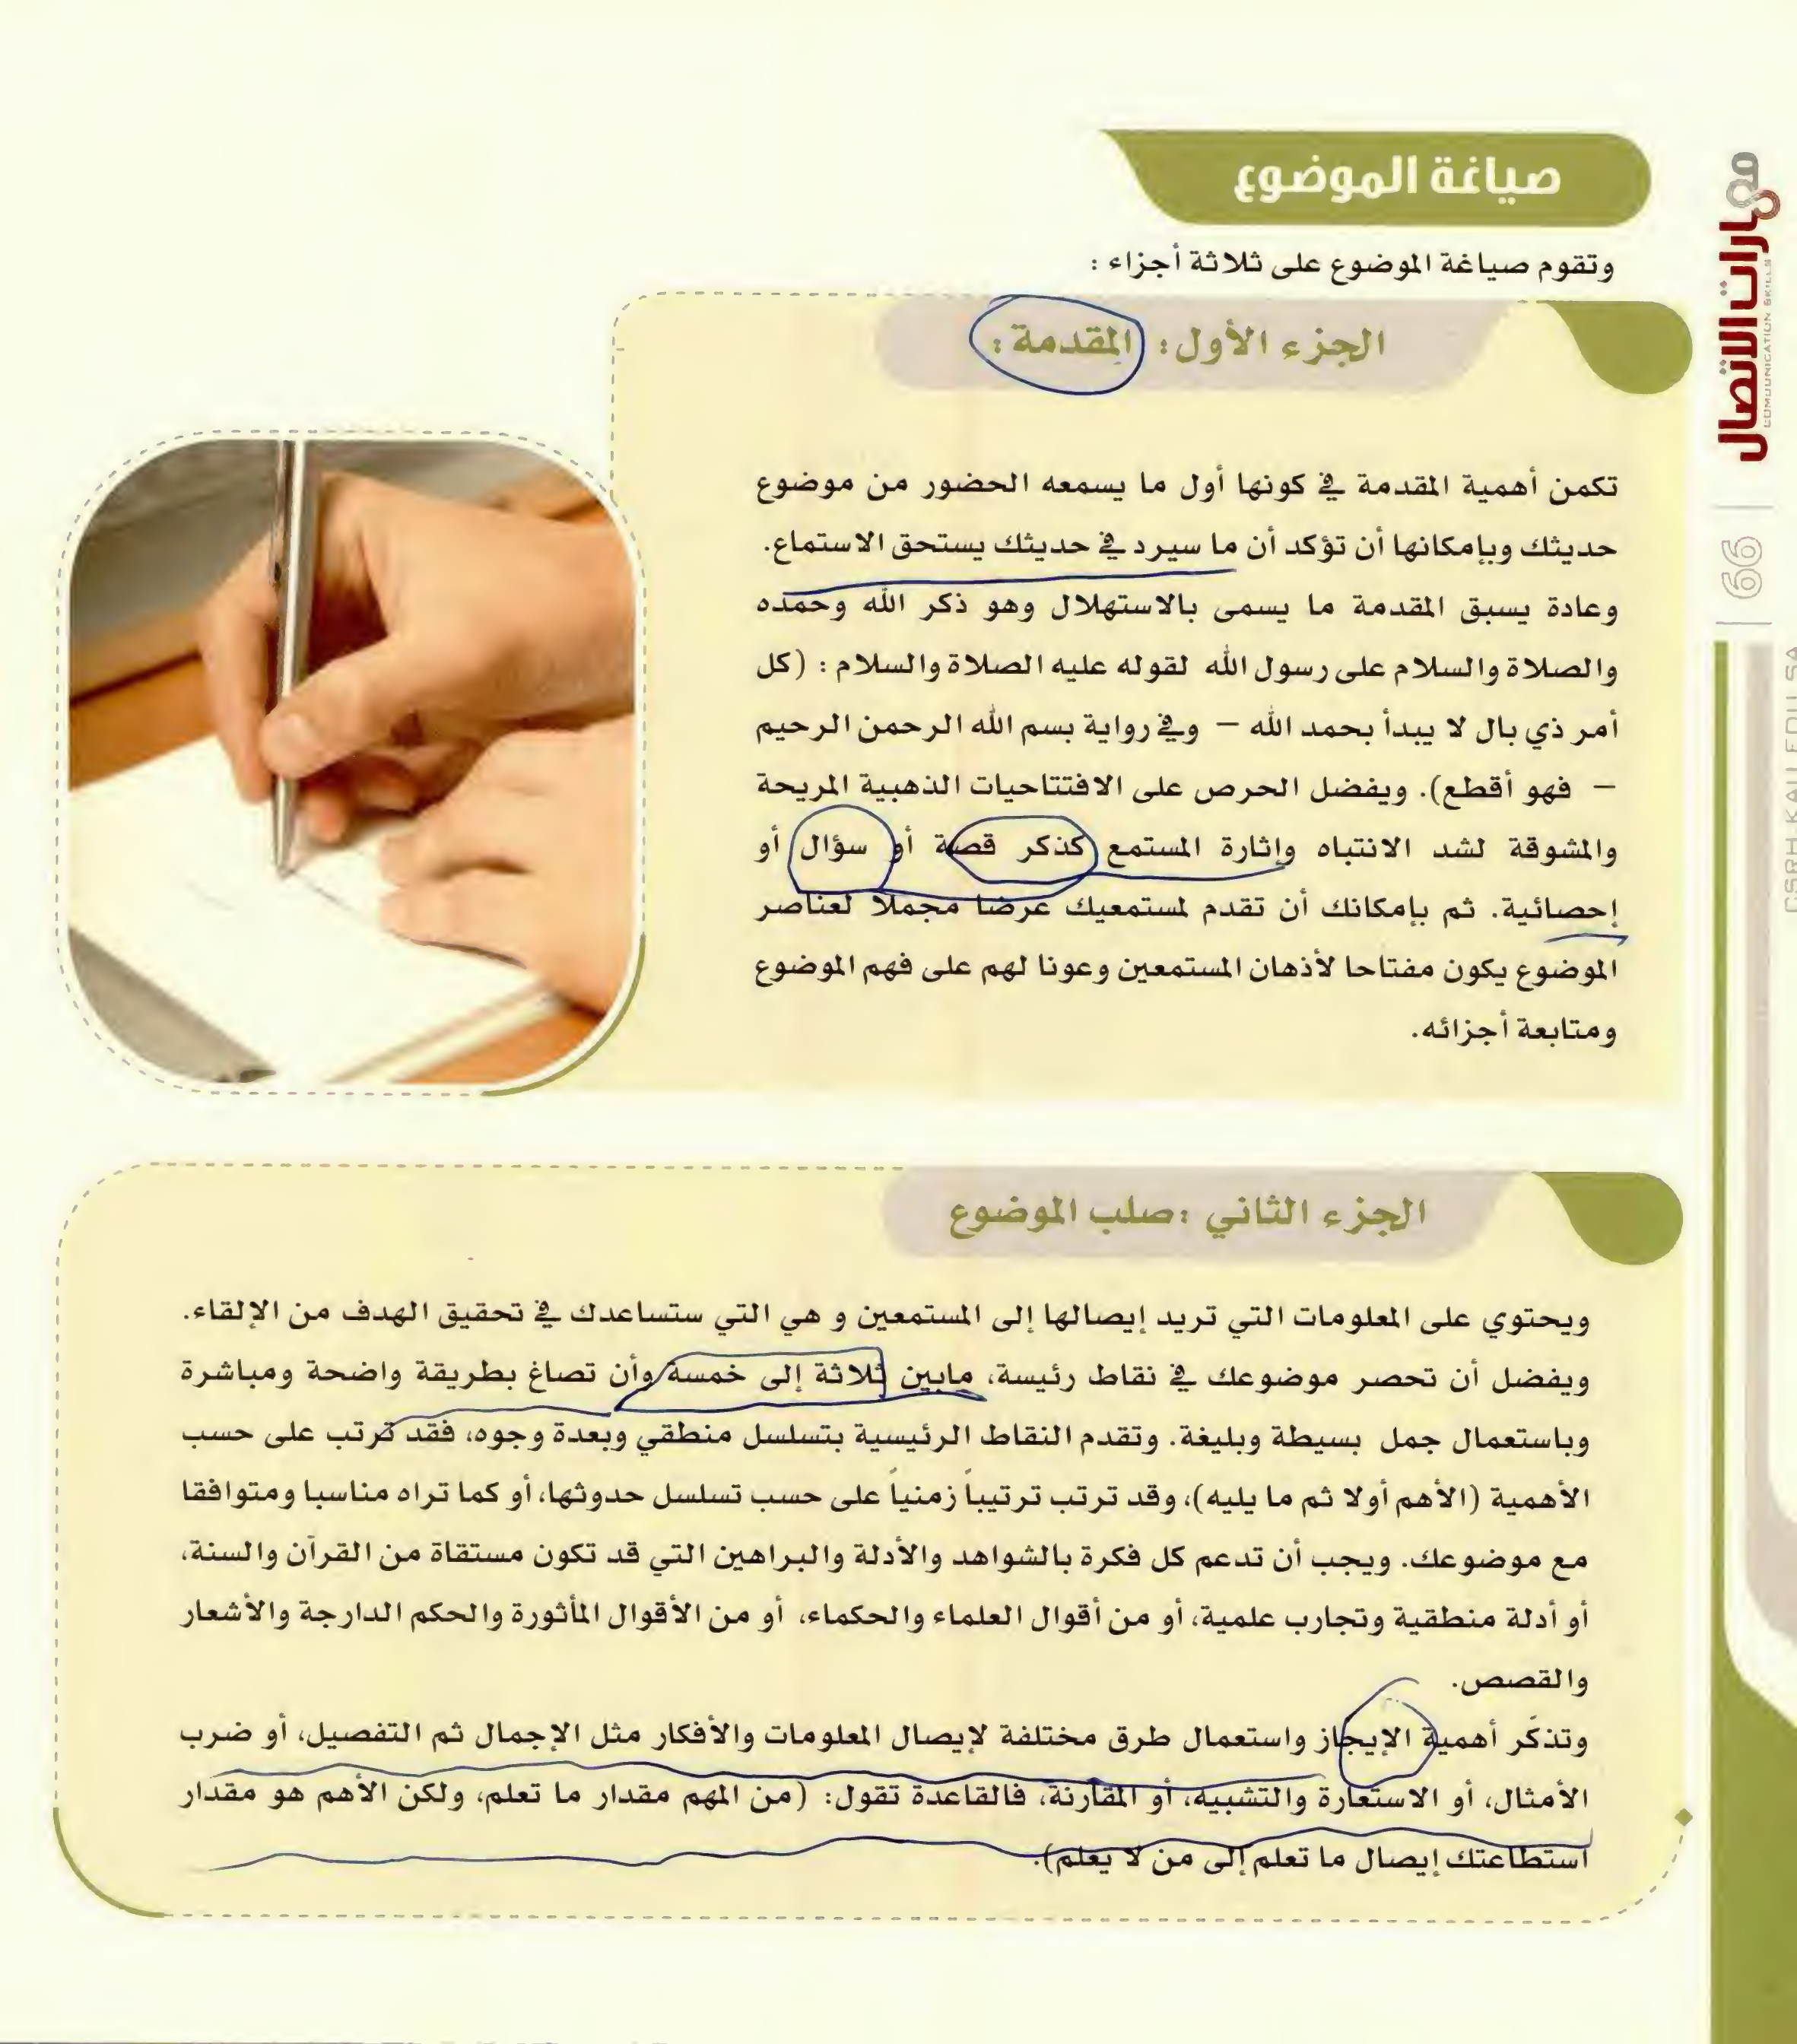 صياغة الموضوع
وتقوم صياغة الموضوع على ثلاثة أجزاء :
الجزء الأول : المقدمة :
تكمن أهمية المقدمة في كونها أول ما يسمعه الحضور من موضوع
حديثك وبإمكانها أن تؤكد أن ما سيرد في حديثك يستحق الاستماع.
وعادة يسبق المقدمة ما يسمى بالاستهلال وهو ذكر الله وحمده
والصلاة والسلام على رسول الله لقوله عليه الصلاة والسلام : (كل
أمر ذي بال لا يبدأ بحمد الله – وفي رواية بسم الله الرحمن الرحيم
– فهو أقطع). ويفضل الحرص على الافتتاحيات الذهبية المريحة
والمشوقة لشد الانتباه وإثارة المستمع كذكر قصة أو سؤال أو
إحصائية. ثم بإمكانك أن تقدم لمستمعيك عرضا مجملا لعناصر
الموضوع يكون مفتاحا لأذهان المستمعين وعونا لهم على فهم الموضوع
ومتابعة أجزائه.
الجزء الثاني :صلب الموضوع
ويحتوي على المعلومات التي تريد إيصالها إلى المستمعين و هي التي ستساعدك في تحقيق الهدف من الإلقاء.
ويفضل أن تحصر موضوعك في نقاط رئيسة، مابين ثلاثة إلى خمسة وأن تصاغ بطريقة واضحة ومباشرة
وباستعمال جمل بسيطة وبليغة. وتقدم النقاط الرئيسية بتسلسل منطقي وبعدة وجوه، فقد ترتب على حسب
الأهمية (الأهم أولا ثم ما يليه)، وقد ترتب ترتيباً زمنياً على حسب تسلسل حدوثها، أو كما تراه مناسبا ومتوافقا
مع موضوعك. ويجب أن تدعم كل فكرة بالشواهد والأدلة والبراهين التي قد تكون مستقاة من القرآن والسنة،
أو أدلة منطقية وتجارب علمية، أو من أقوال العلماء والحكماء، أو من الأقوال المأثورة والحكم الدارجة والأشعار
والقصص.
وتذكّر أهمية الإيجاز واستعمال طرق مختلفة لإيصال المعلومات والأفكار مثل الإجمال ثم التفصيل، أو ضرب
الأمثال، أو الاستعارة والتشبيه، أو المقارنة، فالقاعدة تقول: (من المهم مقدار ما تعلم، ولكن الأهم هو مقدار
استطاعتك إيصال ما تعلم إلى من لا يعلم).
مهارات الاتصال
COMMUNICATION SKILLS
66